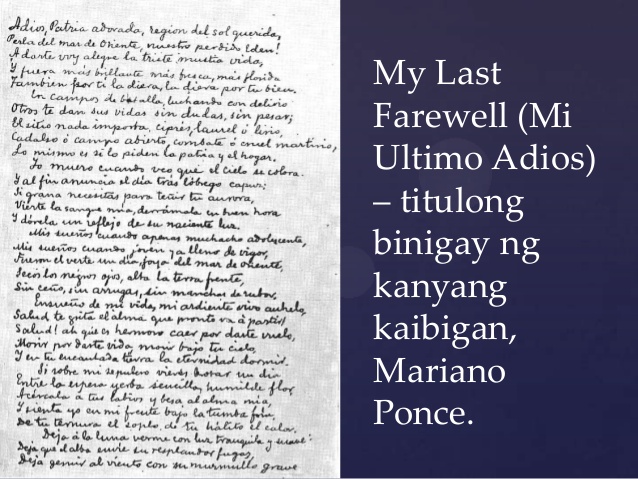 Adios, Patria adorada, region del sol querida,
Perla del mar de Oriente, nuestro perdido Eden!
A darte voy alegre la triste mustia vida,
Y fuera más brillante más fresca, más florida
Tambien por ti la diera, la diera por tu bien.
En campos de batalla, luchando con delirio
Otros te dan sus vidas sin dudas, sin pesar;
El sitio nada importa, ciprés, laurel ó lirio,
Cadalso ó campo abierto, combate ó cruel martirio,
Lo mismo es si lo piden la patria y el hogar.
Yo muero cuando veo que el cielo se colora
Y al fin anuncia el día tras lóbrego capuz;
Si grana necesitas para teñir tu aurora,
Vierte la sangre mía, derrámala en buen hora
Y dórela un reflejo de su naciente luz.
Mis sueños cuando apenas muchacho adolescente,
Mis sueños cuando joven ya lleno de vigor,
Fueron el verte un día, joya del mar de oriente,
Secos los negros ojos, alta la tersa frente,
Sin ceño, sin arrugas, sin manchas de rubor.
Ensueño de mi vida, mi ardiente vivo anhelo,
Salud te grita el alma que pronto va á partir!
Salud! ah que es hermoso caer por darte vuelo,
Morir por darte vida, morir bajo tu cielo,
Y en tu encantada tierra la eternidad dormir.
Si sobre mi sepulcro vieres brotar un dia
Entre la espesa yerba sencilla, humilde flor,
Acércala a tus labios y besa al alma mia,
Y sienta yo en mi frente bajo la tumba fria
De tu ternura el soplo, de tu hálito el calor.
Deja á la luna verme con luz tranquila y suave;
Deja que el alba envie su resplandor fugaz,
Deja gemir al viento con su murmullo grave
My Last
Farewell (Mi
Ultimo Adios)
– titulong
binigay ng
kanyang
kaibigan,
Mariano
Ponce.